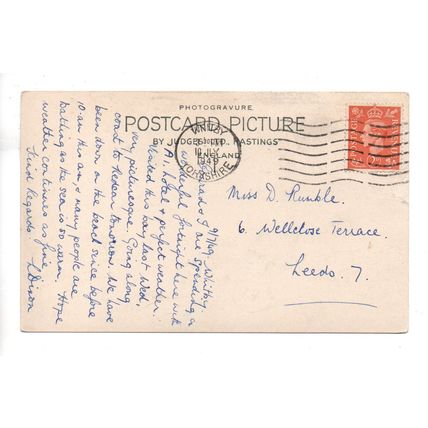 PHOTOGRAVURE
POSTCARD PICTURE
BY JUDGES LTD., HASTINGS
ENGLAND
WHITBY
10 JLY
1949
YORKSHIRE
POSTAGE
9/7/49 Whitby
& I are spending a
wonderful fortnight here with
A1. hotel & perfect weather.
Visited this bay last Wed
very picturesque. Going along
coast to Redcar tomorrow. We have
been down on the beach since before
10 am this am, & many people are
bathing as the sea is so warm. Hope
weather continues as fine.
Kind Regards
Miss D. Rumble.
6. Wellclose Terrace.
Leeds. 7.